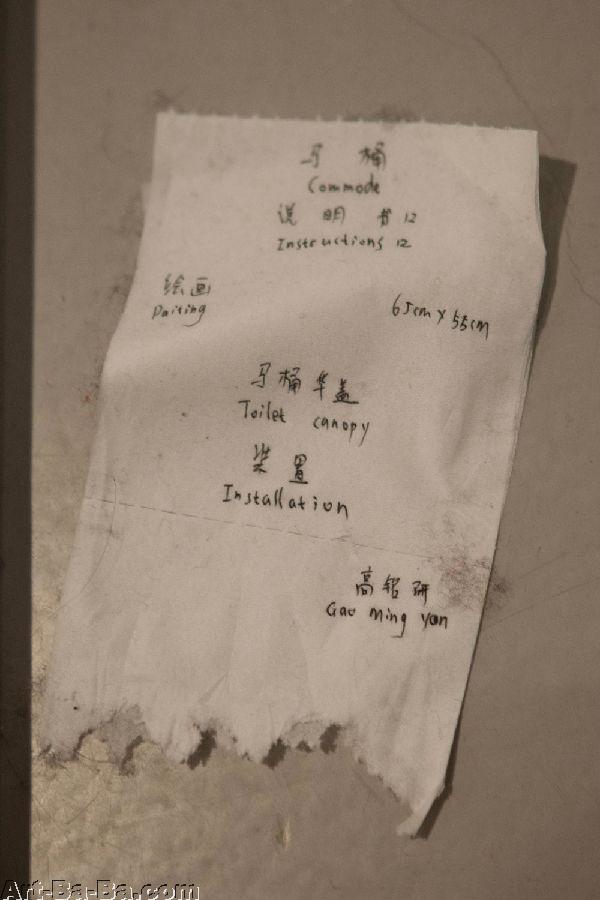 马桶
Commode
说明书12
Instructions 12
绘画
Paiting
65cm x 55cm
马桶华盖
Toilet canopy
装置
Installation
高铭研
Gao Ming yan
Art-Ba-Ba.com